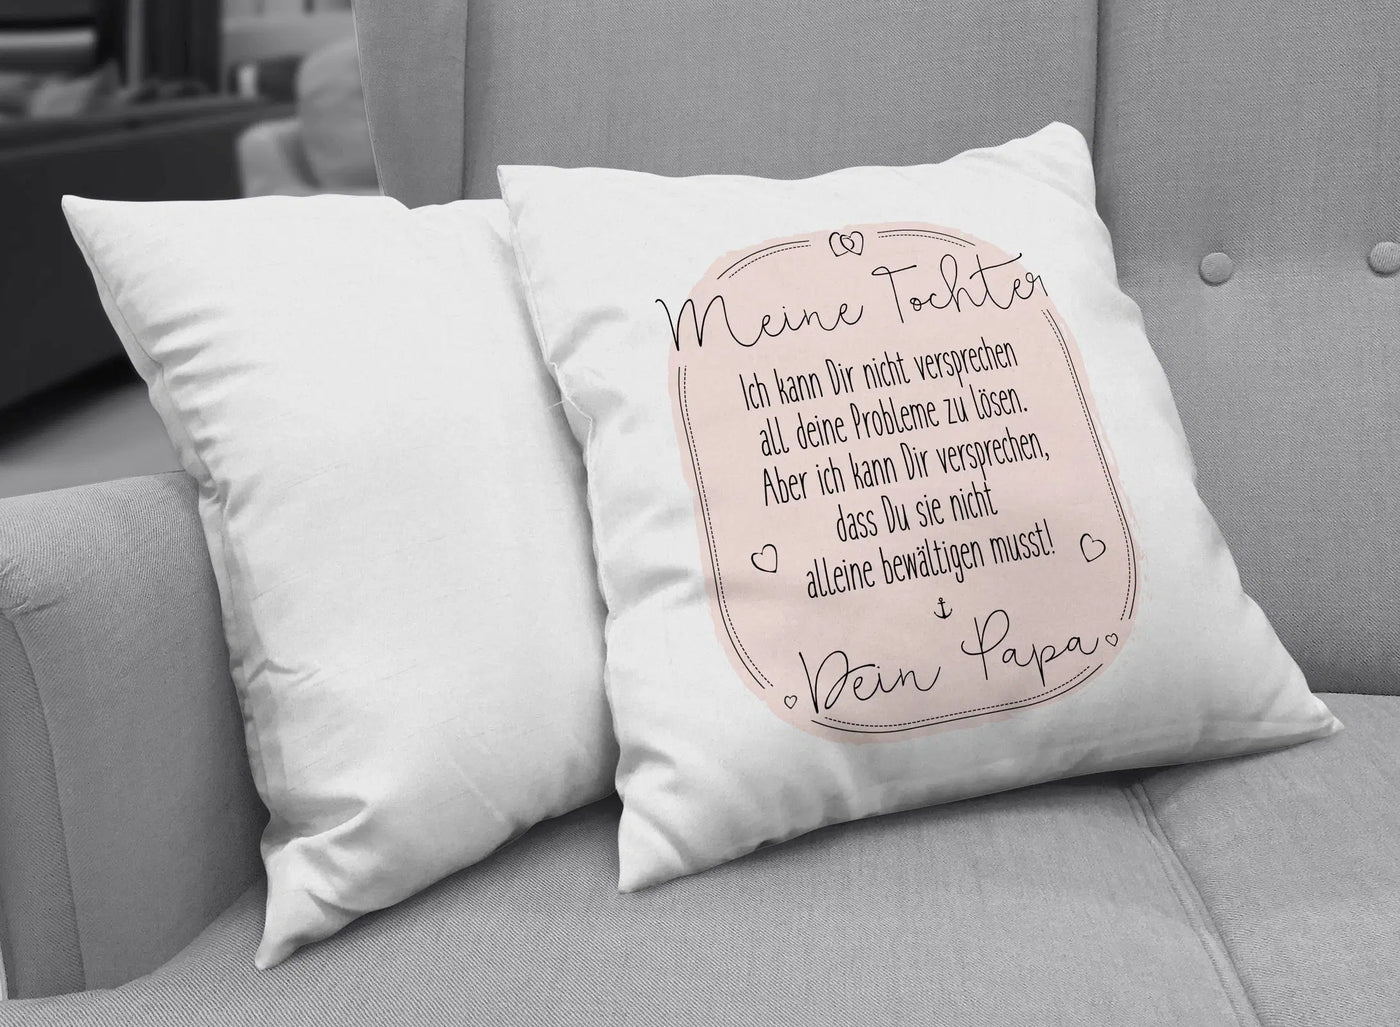 Meine Tochter
Ich kann Dir nicht versprechen
all deine Probleme zu lösen.
Aber ich kann Dir versprechen,
dass Du sie nicht
alleine bewältigen musst!
Dein Papa